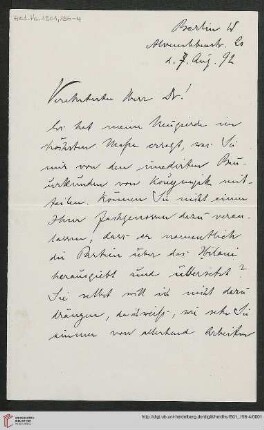 Berlin W
d. 7. Aug. 92
Verehrtester Herr Dr!
Es hat meine Neugierde im
höchsten Maße erregt, was Sie
mir von den inedirten Bau-
urkunden von Kouyunjik mit-
teilen. Können Sie nicht einen
Ihrer Fachgenossen dazu veran-
lassen, dass er namentlich
die Partien über das Hilani
herausgiebt und übersetzt?
Sie selbst will ich nicht dazu
drängen, da ich weiß, wie sehr Sie
immer von allerhand Arbeiten